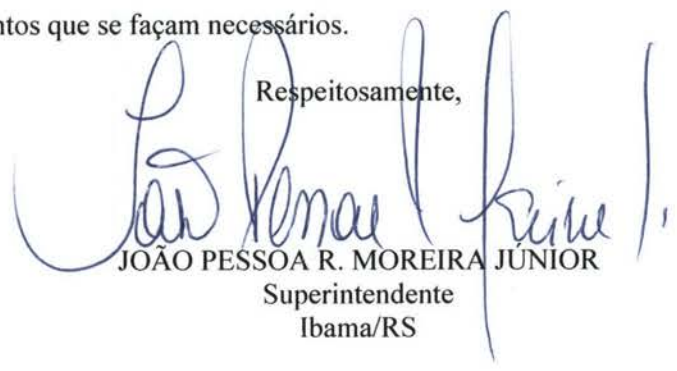 ntos que se façam necessários.
Respeitosamente,
JOÃO PESSOA R. MOREIRA JÚNIOR
Superintendente
Ibama/RS